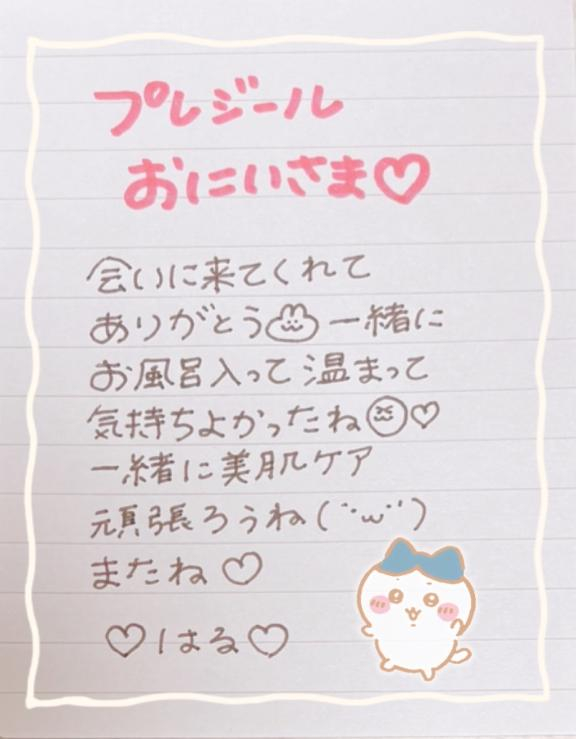 プレジール
おにいさま♡
会いに来てくれて
ありがとう 一緒に
お風呂入って温まって
気持ちよかったね♡
一緒に美肌ケア
頑張ろうね(¨ω¨)
またね♡
♡はる♡